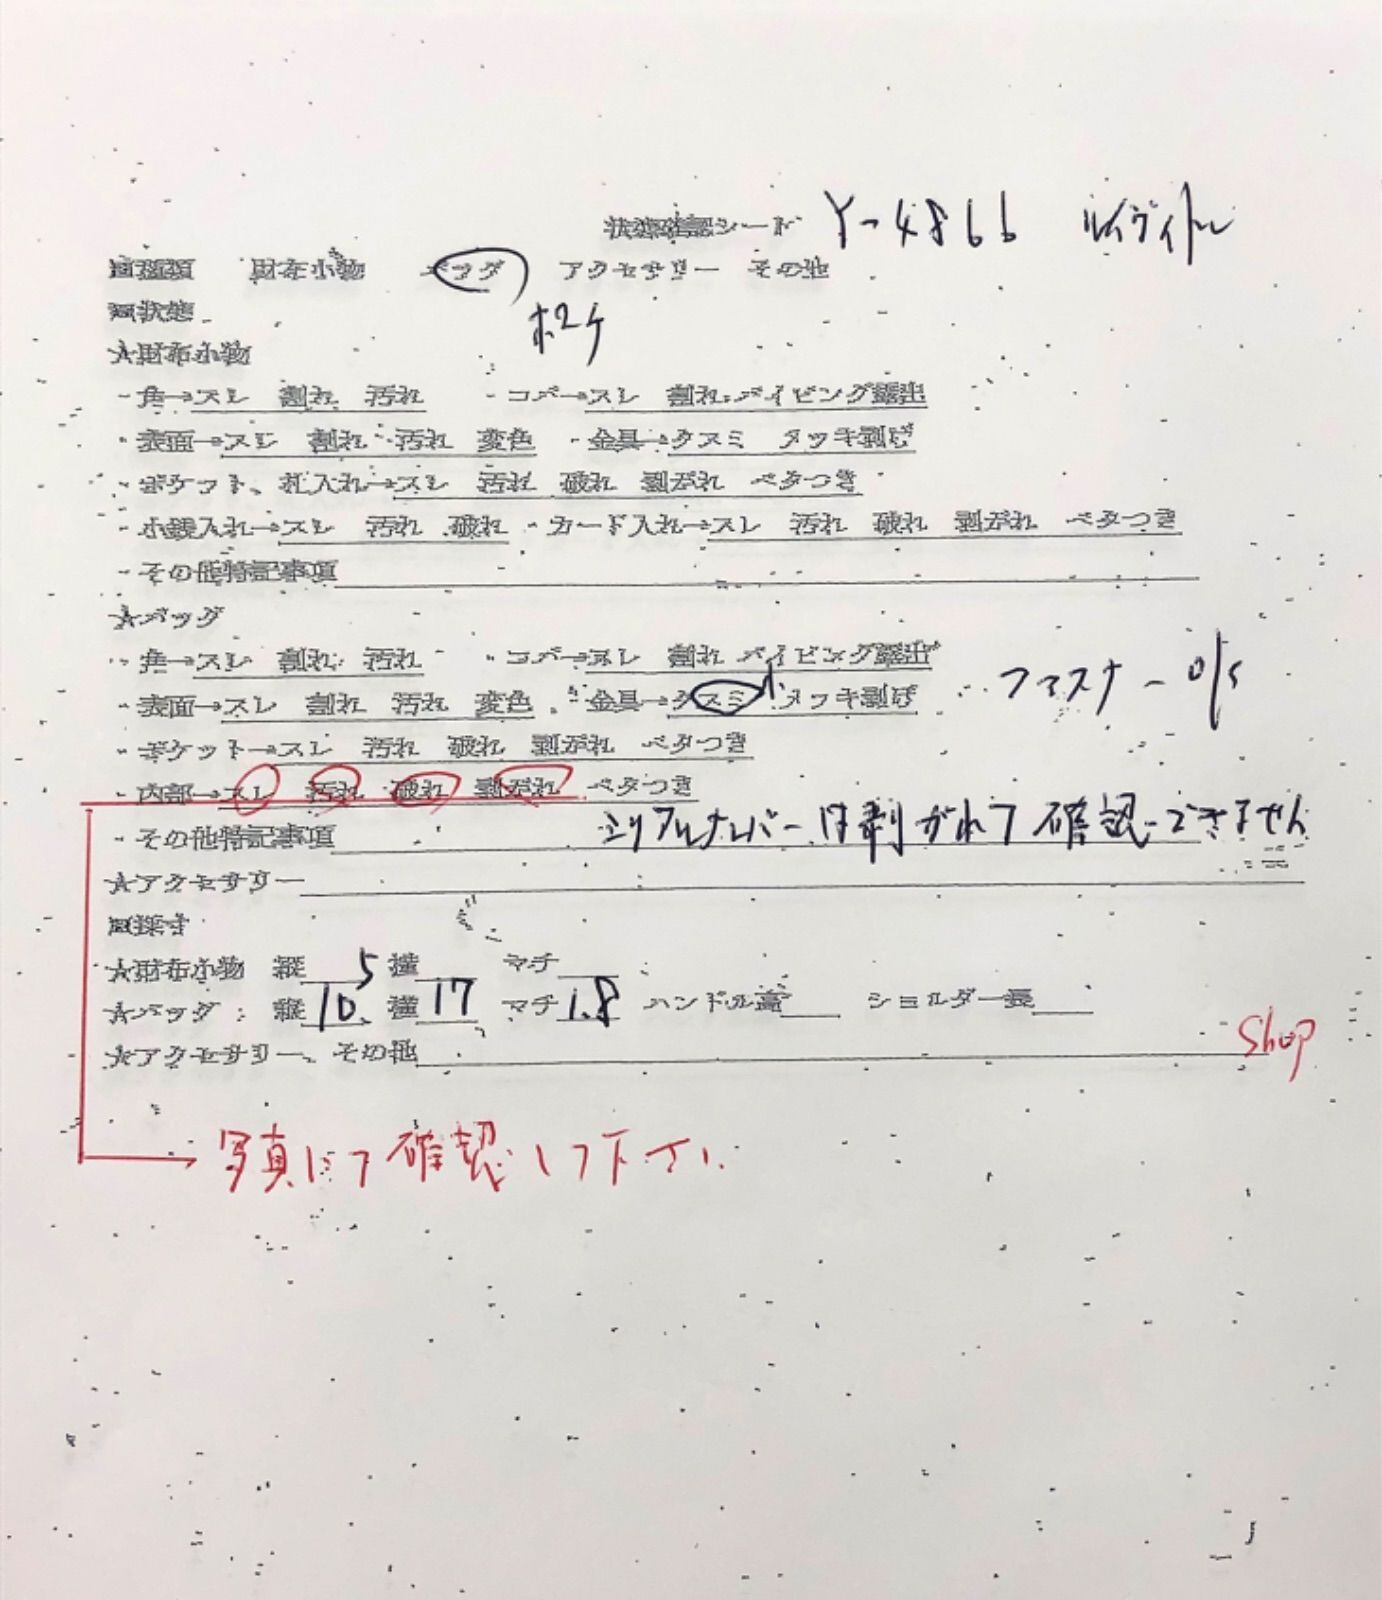 状態確認シート Y-4866 ルイヴィトン
■種類 財布小物 バッグ アクセサリー その他
■状態
ポーチ
★財布小物
・角→スレ 割れ 汚れ ・コバ→スレ 割れ パイピング露出
・表面→スレ 割れ 汚れ 変色 ・金具→クスミ メッキ剥げ
・ポケット、札入れ→スレ 汚れ 破れ 剥がれ ベタつき
・小銭入れ→スレ 汚れ 破れ ・カード入れ→スレ 汚れ 破れ 剥がれ ベタつき
・その他特記事項
★バッグ
・角→スレ 割れ 汚れ ・コバ→スレ 割れ パイピング露出
・表面→スレ 割れ 汚れ 変色 ・金具→クスミ 小 メッキ剥げ ファスナー
・ポケット→スレ 汚れ 破れ 剥がれ ベタつき
・内部→スレ 汚れ 破れ 剥がれ ベタつき
・その他特記事項 シリアルナンバーは剥がれて確認できません
★アクセサリー
■採寸
★財布小物 縦 横 マチ
★バッグ 縦 10.5 横 17 マチ 1.8 ハンドル高 ショルダー長
★アクセサリー、その他
Shop
写真にて確認して下さい